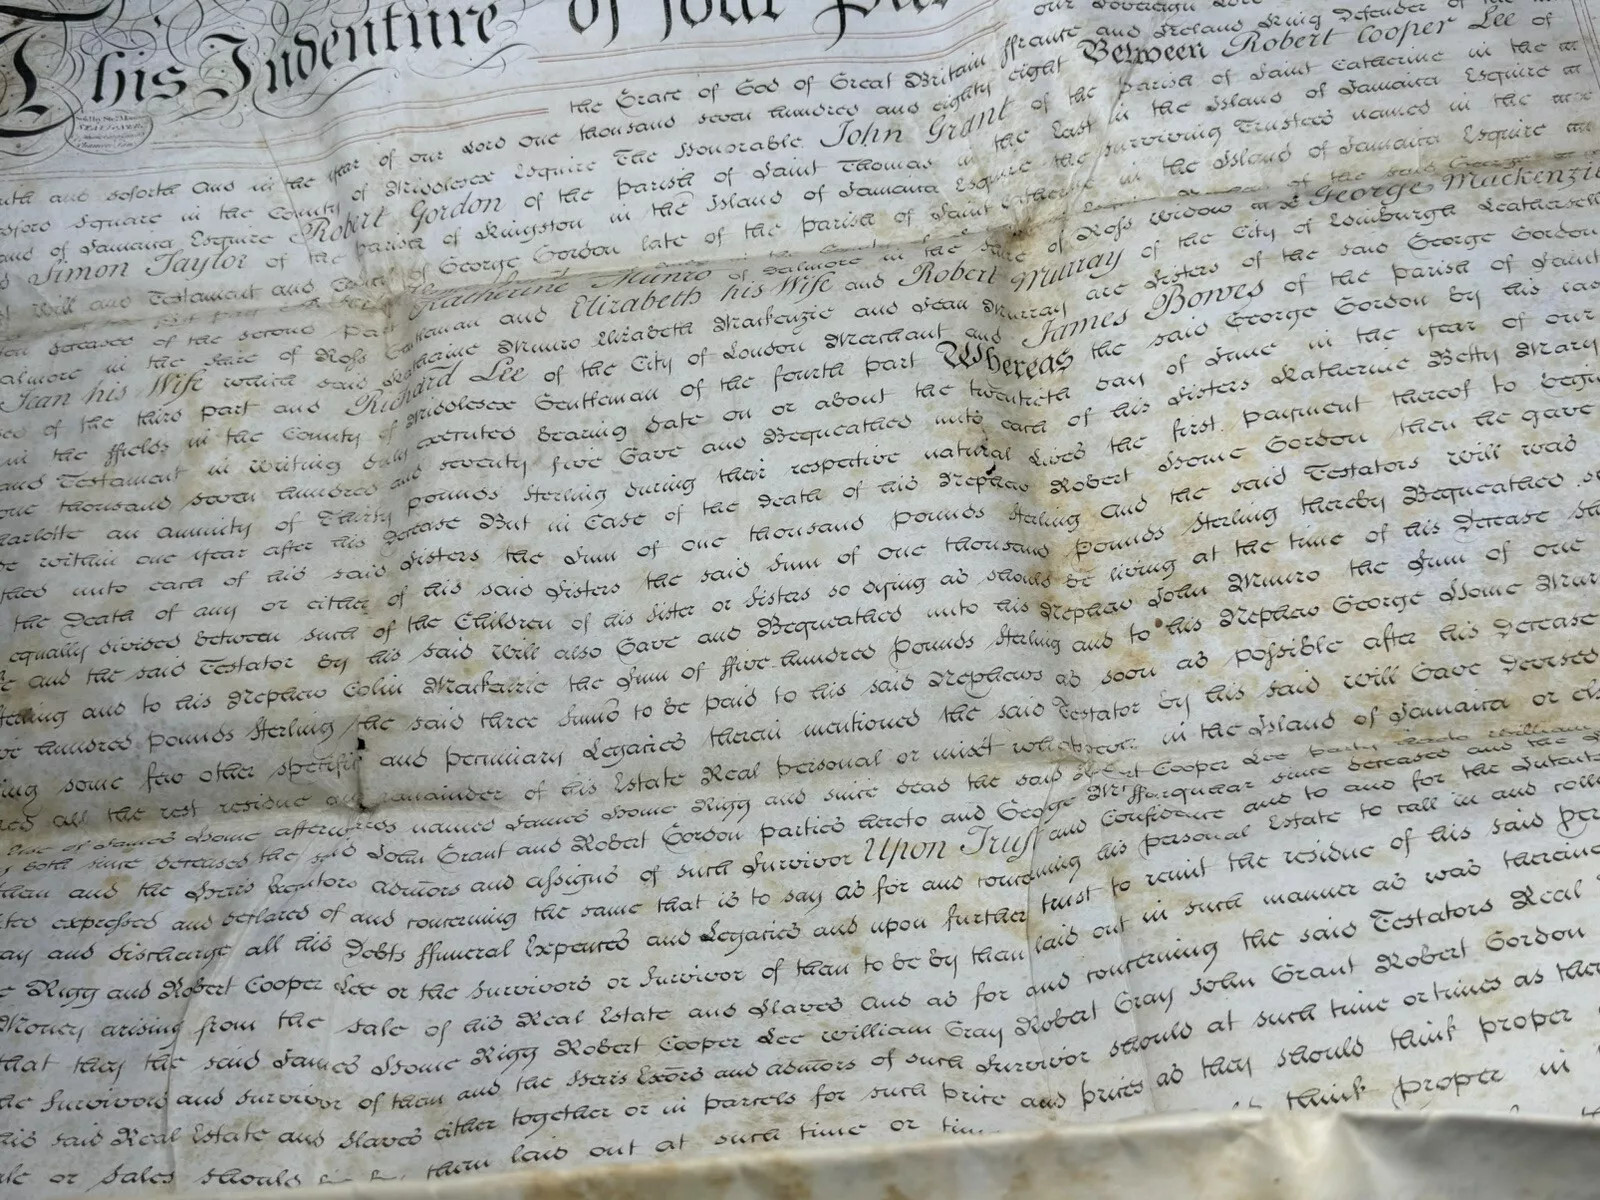 This Indenture of four
our Sovereign
the Grace of God of Great Britain ffrance and Ireland King Defender of the
and soforth And in the year of our Lord One thousand seven hundred and eighty eight Between Robert Cooper Lee of
Square in the County of Middlesex Esquire The Honorable John Grant of the parish of Saint Catherine in the
of Jamaica Esquire Robert Gordon of the parish of Saint Thomas in the East in the Island of Jamaica Esquire
Simon Taylor of the parish of Kingston in the Island of Jamaica Esquire the surviving Trustees named in the
Will and Testament and of George Gordon late of the parish of Saint Catherine in the Island of Jamaica Esquire
deceased of the second part Katherine Munro of Calmore in the Shire of Ross Widow George Mackenzie
in the Shire of Ross and Elizabeth his Wife and Robert Murray of the City of Edinburgh
Jean his Wife which said Katharine Munro Elizabeth Mackenzie and Jean Murray are Sisters of the said George Gordon
of the third part and Richard Lee of the City of London Merchant and James Bowes of the parish of Saint
in the ffields in the County of Middlesex Gentleman of the fourth part Whereas the said George Gordon by his
and Testament in Writing duly executed bearing date on or about the twentieth day of June in the year of our
one thousand seven hundred and seventy five Gave and Bequeathed unto each of his Sisters Katherine Betty Mary
an annuity of Thirty pounds Sterling during their respective natural Lives the first payment thereof to begin
within one year after his Decease But in Case of the Death of his Nephew Robert Home Gordon then he gave
unto each of his said Sisters the Sum of one thousand pounds Sterling And the said Testators Will was
the Death of any or either of his said Sisters the said Sum of one thousand pounds Sterling thereby Bequeathed
equally divided between such of the Children of his Sister or Sisters so dying as should be living at the time of his Decease
and the said Testator by his said Will also Gave and Bequeathed unto his Nephew John Munro the Sum of one
and to his Nephew Colin Mackenzie the Sum of ffive hundred pounds Sterling and to his Nephew George Home
hundred pounds Sterling the said three Sums to be paid to his said Nephews as soon as possible after his Decease
some few other specific and pecuniary Legacies therein mentioned the said Testator by his said Will Gave Devised
all the rest residue and remainder of his Estate Real personal or mixt whatsoever in the Island of Jamaica or
of James Home afterwards named James Home Rigg and since dead the said Robert Cooper Lee party hereto William
both since deceased the said John Grant and Robert Gordon parties hereto and George since deceased and the
and the Heirs Executors Admors and assigns of such Survivor Upon Trust and Confidence and to and for the Intents
expressed and declared of and concerning the same that is to say as for and concerning his personal Estate to call in and
and discharge all his Debts ffuneral Expences and Legacies and upon further trust to remit the residue of his said
Rigg and Robert Cooper Lee or the Survivors or Survivor of them to be by them laid out in such manner as was therein
Money arising from the Sale of his Real Estate and Slaves and as for and concerning the said Testators Real
that they the said James Home Rigg Robert Cooper Lee William Gray Robert Gray John Grant Robert Gordon
the Survivors and Survivor of them and the Heirs Exors and admors of such Survivor should at such time or times as they
his said Real Estate and Slaves either together or in parcels for such price and prices as they should think proper
or Sales should them laid out at such time or think proper in